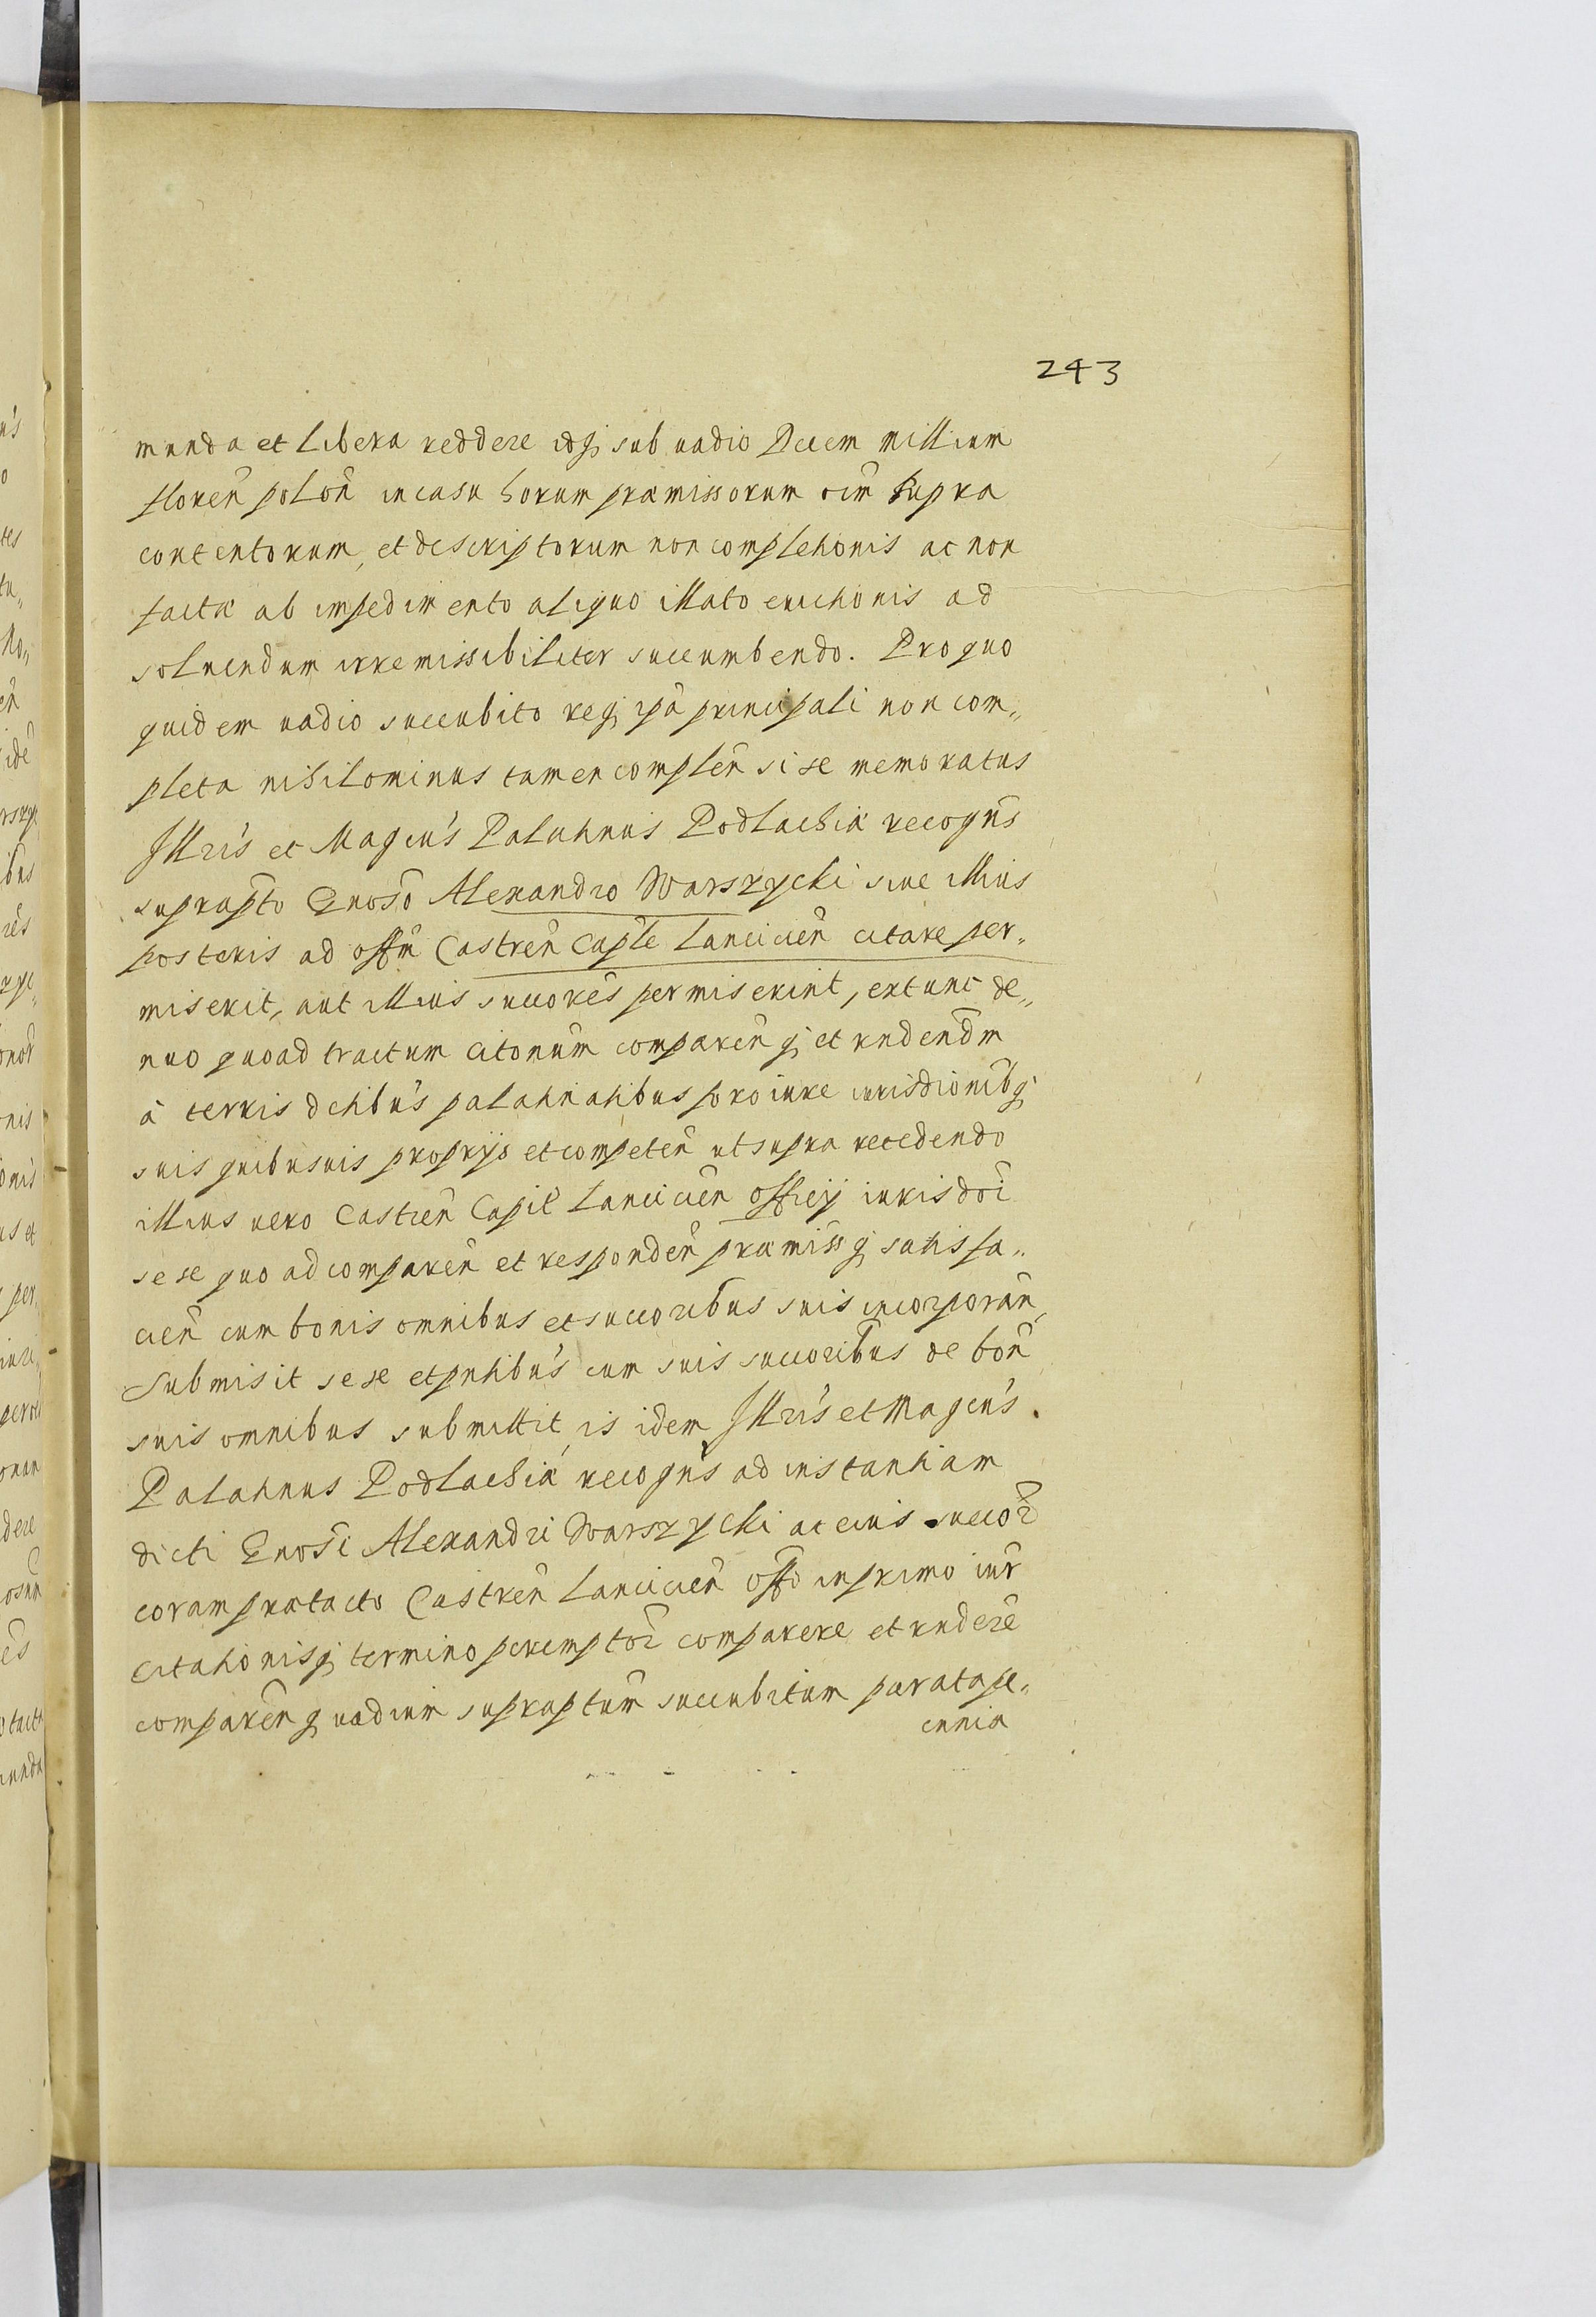 243
munda et libera reddere idq sub uadio Decem millium
floren̄ polon̄ in casu horum præmissorum oīm supra
contentorum, et descriptorum non completionis ac non
factæ ab impedimento aliquo illato euictionis ad
soluendum irremissibiliter succumbendo. Pro quo
quidem uadio succubito req ipā principali non com„
pleta nihilominus tamen complen̄ si se memoratus
Illris et Magcus Palatinus Podlachiæ recogn̄s
suprapto Gnoso Alexandro Warszycki siue illius
posteris ad offm Castren̄ Caple Lancicien̄ citare per„
miserit, aut illius succores permiserint, extunc de„
nuo quoad tractum citonum comparen̄ q et rndendm
à terris dictibus palatinatibus foro iure iurisdionibq
suis quibusuis proprijs et competen̄ ut supra recedendo
illius uero Castren̄ Capil Lancicien̄ officij iurisdoi
sese quo ad comparen̄ et responden̄ præmiss q satisfa„
cien̄ cum bonis omnibus et succoribus suis incorporan̄,
submisit sese et pntibus cum suis succoribus de bon̄
suis omnibus submittit, is idem Illris et Magcus
Palatinus Podlachiæ recogn̄s ad instantiam
dicti Gnosi Alexandri Warszycki ac eius succor̄
coram prætacto Castren̄ Lancicien̄ offo in primo iur̄
citationisq termino peremptor̄ comparere et rndere
comparenq uadium supraptum succubitum parata pe„
cunia